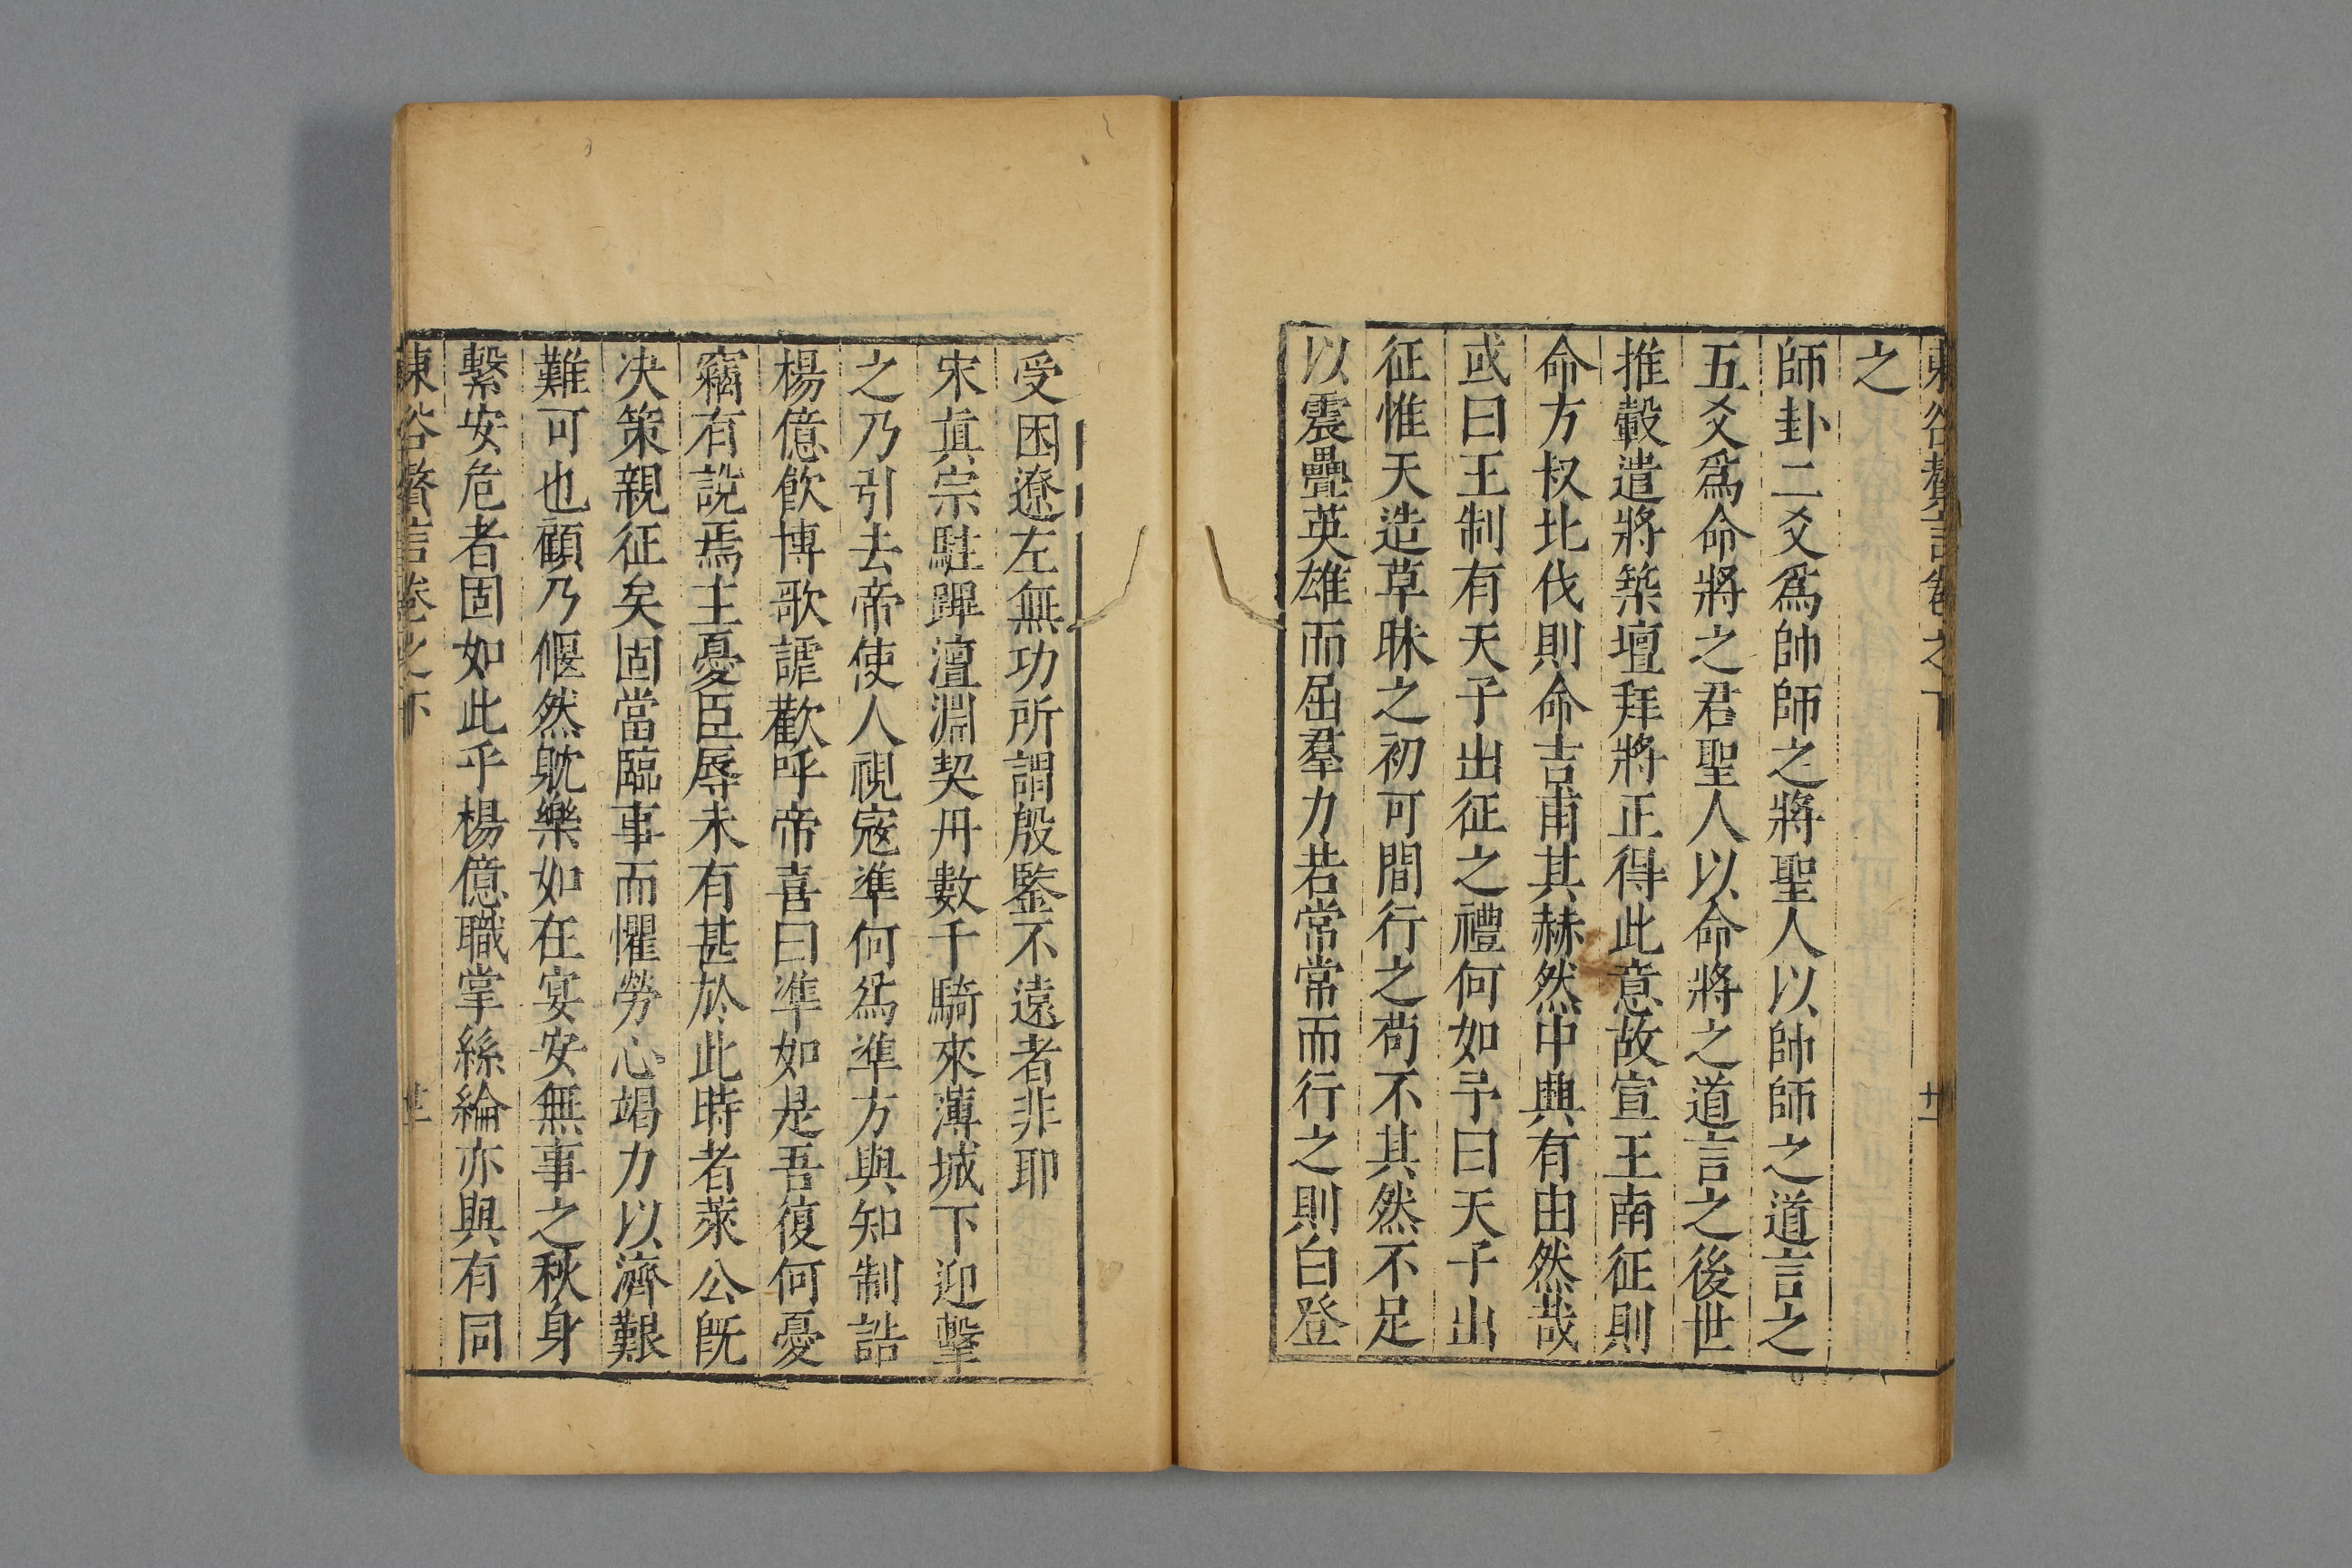 東谷贅言卷之下
廿一
之
師卦二爻爲帥師之將聖人以帥師之道言之
五爻爲命將之君聖人以命將之道言之後世
推轂遣將築壇拜將正得此意故宣王南征則
命方叔北伐則命吉甫其赫然中興有由然哉
或曰王制有天子出征之禮何如予曰天子出
征惟天造草昧之初可間行之苟不其然不足
以震疊英雄而屈羣力若常常而行之則白登
受困遼左無功所謂殷鑒不遠者非耶
宋眞宗駐蹕澶淵契丹數千騎來薄城下迎擊
之乃引去帝使人視寇準何爲準方與知制誥
楊億飮博歌謔歡呼帝喜曰準如是吾復何憂
竊有說焉主憂臣辱未有甚於此時者萊公旣
决策親征矣固當臨事而懼勞心竭力以濟艱
難可也顧乃偃然躭樂如在宴安無事之秋身
繫安危者固如此乎楊億職掌絲綸亦與有同
東谷贅言卷之下